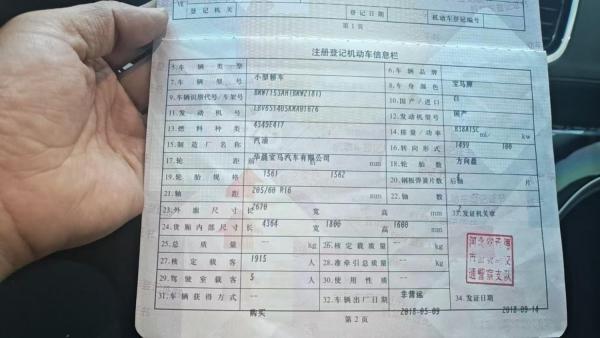 登记机关 登记日期 机动车登记编号
第1页
注册登记机动车信息栏
5.车辆类型 小型轿车 6.车辆品牌 宝马牌
7.车辆型号 BMW7153AM(BMW2181) 8.车身颜色 白
9.车辆识别代号/车架号 10.国产/进口 国产
11.发动机号 4349E417 12.发动机型号 B38A15C
13.燃料种类 汽油 14.排量/功率 1499 ml/ 100 kw
15.制造厂名称 华晨宝马汽车有限公司 16.转向形式 方向盘
17.轮距 前 1561 后 1562 mm 18.轮胎数 4
19.轮胎规格 205/60 R16 20.钢板弹簧片数 后轴 片
21.轴距 2670 mm 22.轴数
23.外廓尺寸 长 4364 宽 1800 高 1600 mm 33.发证机关章
24.货厢内部尺寸 长 -- 宽 -- 高 -- mm
25.总质量 1915 kg 26.核定载质量 -- kg
27.核定载客 5 人 28.准牵引总质量 -- kg
29.驾驶室载客 -- 人 30.使用性质 非营运
31.车辆获得方式 购买 32.车辆出厂日期 2018-05-09 34.发证日期 2018-09-14
第2页